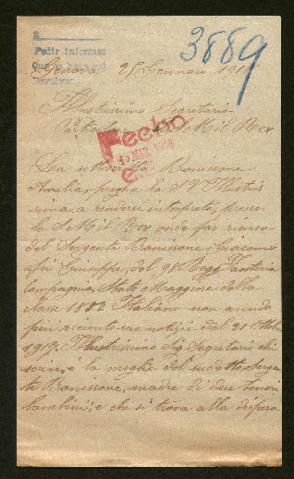 Pedir informes
Genova, 25 Gennaio 191
3889
Illustrissimo Segretario
Particolare S. M. il Re
Fecho
13 MAR. 1918
La sottoscritta
Amelia, prega la S. V. Illustris
sima, a rendersi interprete, presso
S. M. il Re onde far ricerca
del Sergente Giacomo
di Giuseppe, del 98 Regg. Fanteria
Compagnia Stato Maggiore della
classe 1882 Italiano non avendo
più ricevuto sue notizie dal 21 Ottobre
1917. Illustrissimo Sig. Segretario chi
scrive, è la moglie del sudetto Sergen
te madre di due teneri
bambini, e che si trova alla dispera